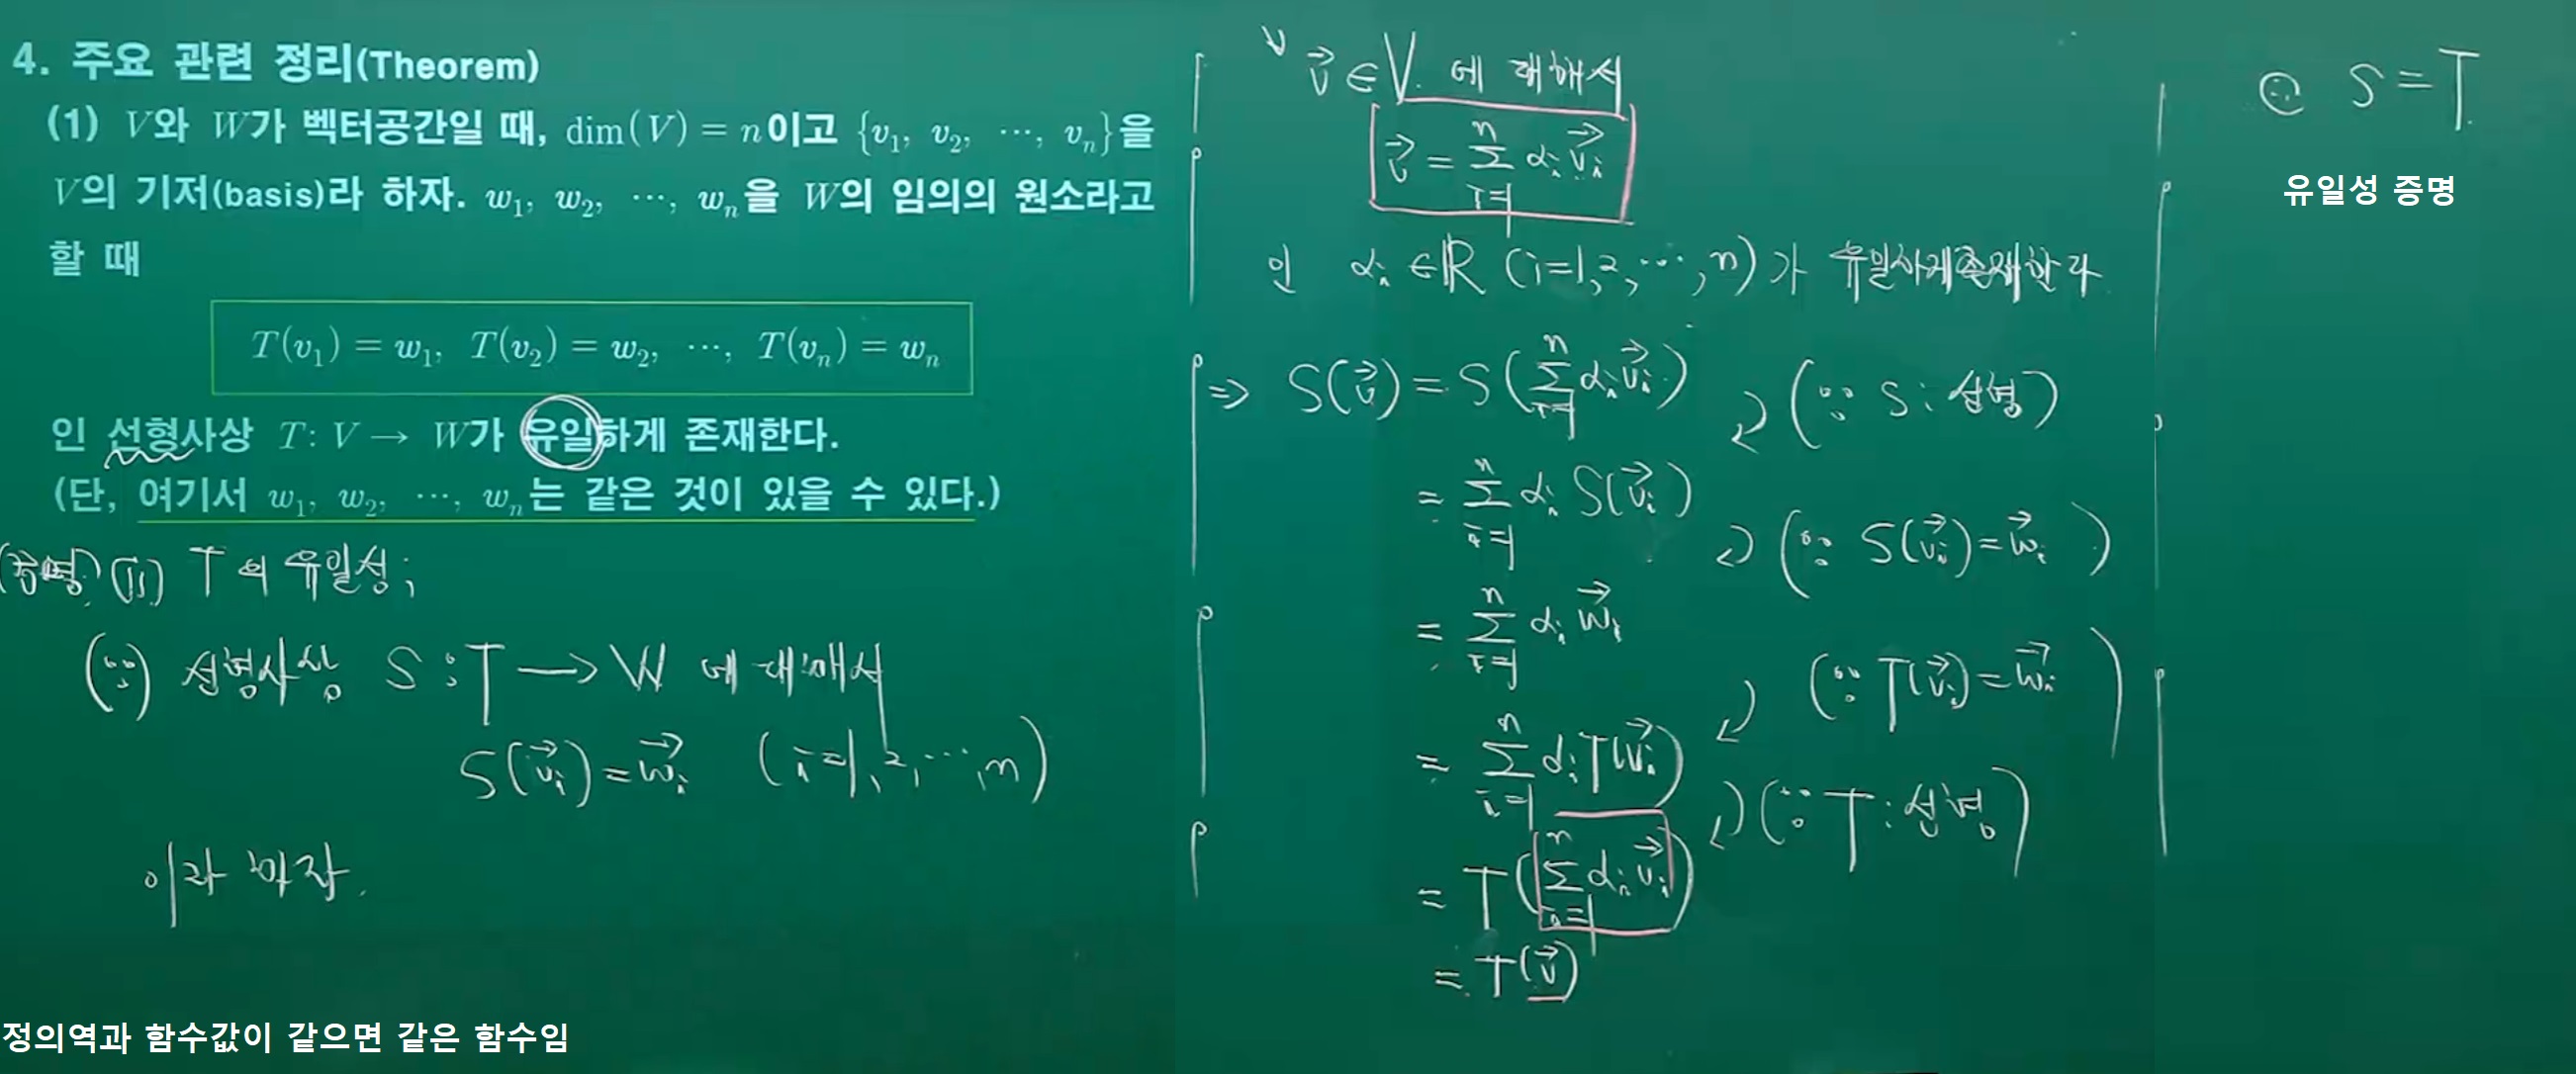 4. 주요 관련 정리(Theorem)
(1) V와 W가 벡터공간일 때, dim(V) = n이고 {v₁, v₂, ⋯, vₙ}을
V의 기저(basis)라 하자. w₁, w₂, ⋯, wₙ을 W의 임의의 원소라고
할 때
T(v₁) = w₁, T(v₂) = w₂, ⋯, T(vₙ) = wₙ
인 선형사상 T: V → W가 유일하게 존재한다.
(단, 여기서 w₁, w₂, ⋯, wₙ는 같은 것이 있을 수 있다.)
(증명) (ii) T의 유일성;
(∵) 선형사상 S : T → W 에 대해서
S(v⃗ᵢ) = w⃗ᵢ (i=1, 2, ⋯, n)
이라 하자.
정의역과 함수값이 같으면 같은 함수임
∨ v⃗ ∈ V. 에 대해서
v⃗ = ∑ⁿᵢ₌₁ αᵢ v⃗ᵢ
인 αᵢ ∈ ℝ (i=1, 2, ⋯, n)가 유일하게 존재한다
⇒ S(v⃗) = S(∑ⁿᵢ₌₁ αᵢ v⃗ᵢ) (∵ S : 선형)
= ∑ⁿᵢ₌₁ αᵢ S(v⃗ᵢ) (∵ S(v⃗ᵢ) = w⃗ᵢ)
= ∑ⁿᵢ₌₁ αᵢ w⃗ᵢ (∵ T(v⃗ᵢ) = w⃗ᵢ)
= ∑ⁿᵢ₌₁ αᵢ T(v⃗ᵢ) (∵ T : 선형)
= T(∑ⁿᵢ₌₁ αᵢ v⃗ᵢ)
= T(v⃗)
∴ S = T.
유일성 증명